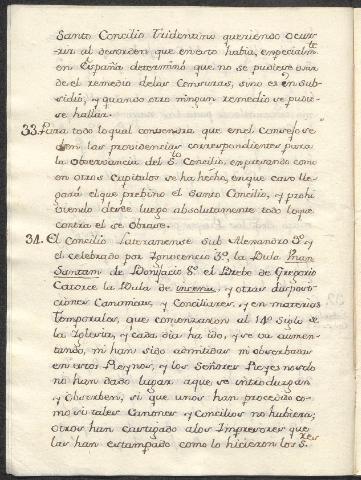 Santo Concilio Tridentino queriendo ocur-
rir al desorden que en esto habia, especialmte.
en España determinó que no se pudiese usar
de el remedio delas Censuras, sino es en sub-
sidio, y quando otro ningun remedio se pudie-
se hallar.
33. Para todo loqual convendria que en el Consejo se
den las providencias correspondientes para
la observancia del Sto. Concilio, expresando como
en otros Capitulos se ha hecho, en que caso lle-
gará el que prebino el Santo Concilio, y prohi
viendo desde luego absolutamente todo loque
contra el se obrare.
34. El Concilio Lateranense sub Alexandro 3º. y
el celebrado por Ynocencio 3º. la Bula Unam
Santam de Bonifacio 8º. el Brebe de Gregorio
Catorce la Bula de incena, y otras disposi
ciones Canonicas, y Conciliares, y en materias
temporales, que comenzaron al 14º Siglo de
la Iglesia, y cada dia ha ido, y se va aumen-
tando, ni han sido admitidas ni observadas
en estos Reynos, y los Señores Reyes no solo
no han dado lugar aque se introduzgan
y observen, si que unos han procedido co-
mo si tales Canones y Concilios no hubiera;
otros han castigado alos Impresores que
las han estampado como lo hicieron los S.res